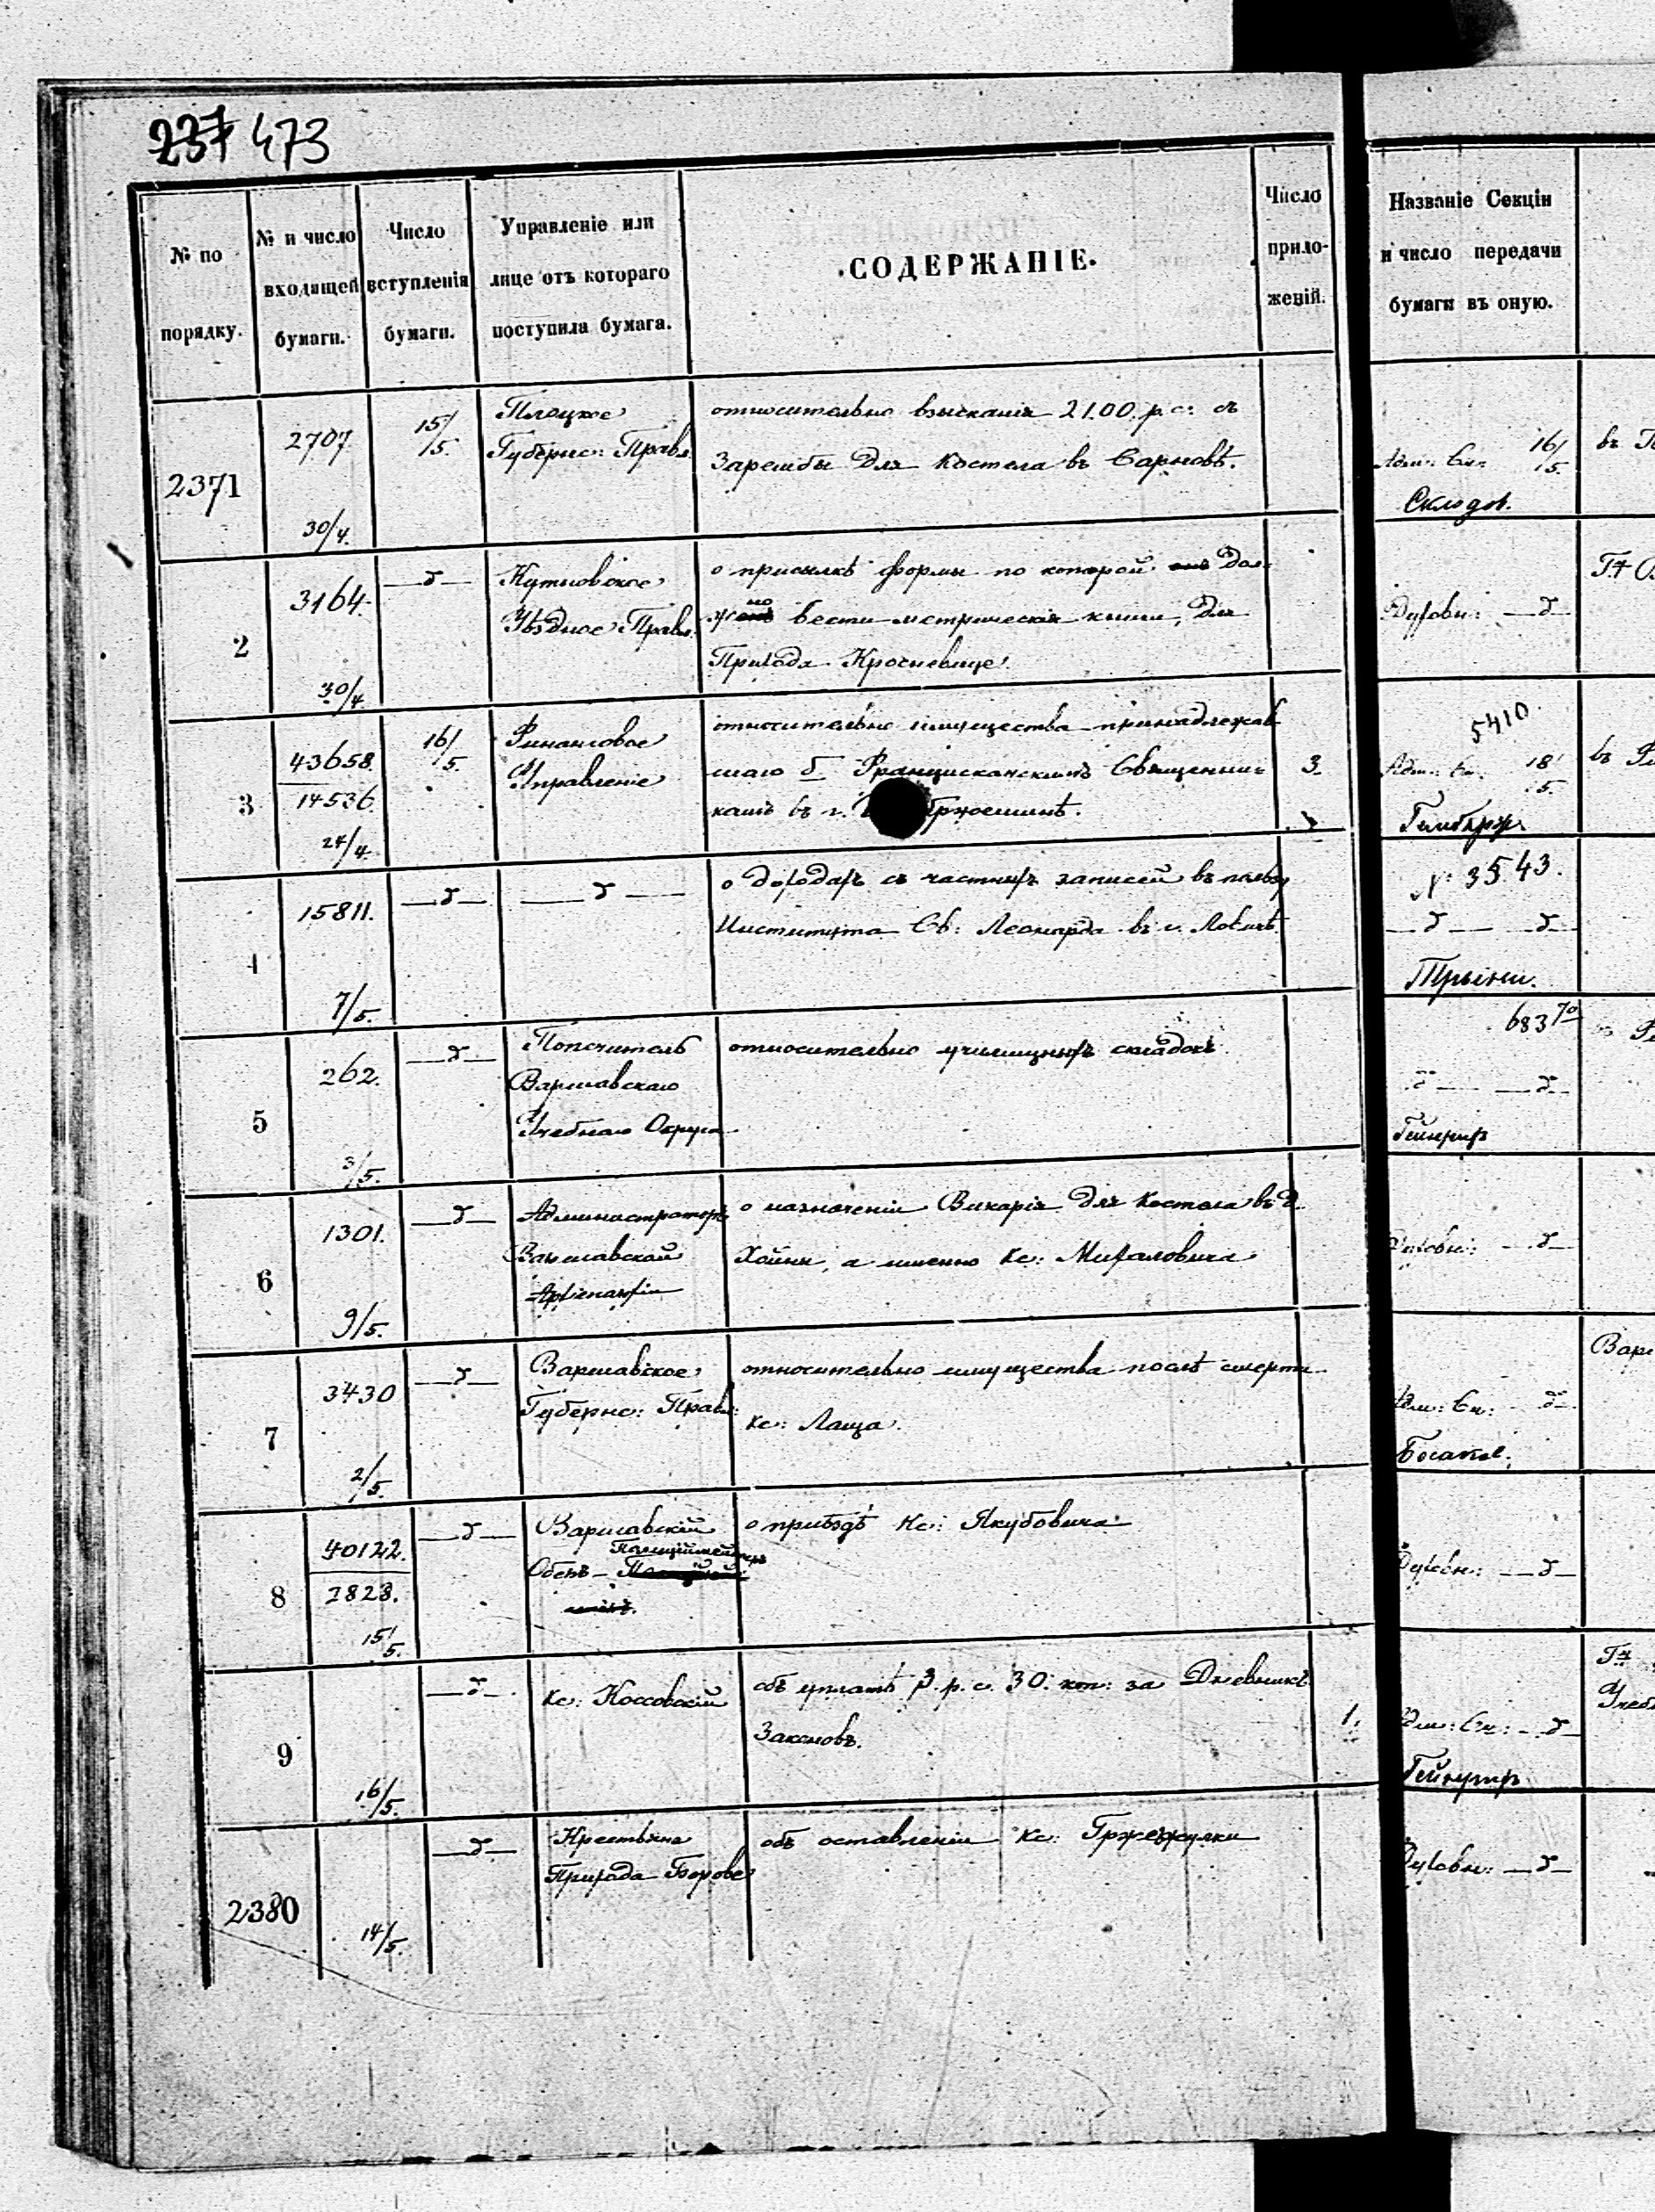 237 473
№ по порядку.
№ и число входящей бумаги.
Число вступленія бумаги.
Управленіе или лице отъ котораго поступила бумага.
СОДЕРЖАНІЕ.
Число приложеній.
Названіе Секціи и число передачи бумаги въ оную.
2371
2707
30/4.
15/5.
Плоцкое
Губернс: Правл.
относительно взысканія 21.00. р. с: съ
Зарембы для Костела въ Сарновѣ.
Адм: Ск:
16/5.
въ
2
3164.
30/4.
Кутновское
Уѣздное Правл.
о присылкѣ формы по которой онъ дол-
жно вести метрическія книги, для
Прихода Кросневице.
Духовн:
3
43658.
14536.
24/4.
16/5.
Финансовое
Управленіе
относительно имущества принадлежав
шаго б Францисканскимъ Священни-
камъ въ г.
3.
5410.
Адм: Ск.
18/5.
въ
4
15811.
7/5.
о доходахъ съ частныхъ записей въ пользу
Института Св: Леонарда въ г. Ловичѣ.
№ 3543.
5
262.
3/5.
Попечитель
Варшавскаго
Учебнаго Округа
относительно училищныхъ складокъ.
683
6
1301.
9/5.
Администраторъ
Варшавской
Архіепархіи
о назначеніи Викарія для Костела въ д.
Хойны, а именно Кс: Михаловича
Духовн:
7
3430
2/5.
Варшавское
Губернс: Правл:
относительно имущества послѣ смерти
Кс: Лаща.
Адм: Ск:
Вар
8
40122.
2828.
15/5.
Варшавскій
Полиціймейстеръ
Оберъ-
о пріѣздѣ Кс: Якубовича
Духовн:
9
16/5.
Кс: Коссовскій
объ уплатѣ 3. р. с. 30. коп: за Дневникъ
Законовъ.
1.
Адм: Ск:
2380
14/5.
Крестьяне
Прихода Борове
объ оставленіи Кс: Гржежулки
Духовн: